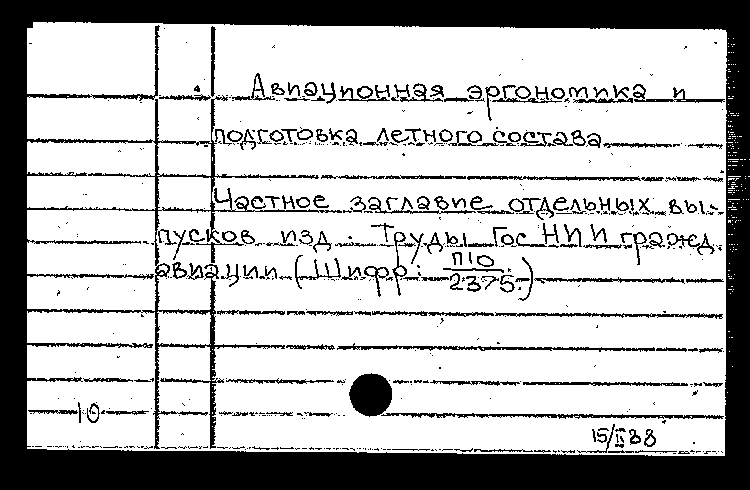 Авиационная эргономика и
подготовка летного состава
Частное заглавие отдельных вы-
пусков изд. Труды Гос НИИ гражд.
авиации (Шифр: П10/2375.)
10
15/II 88